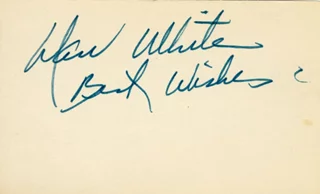 White
Best Wishes